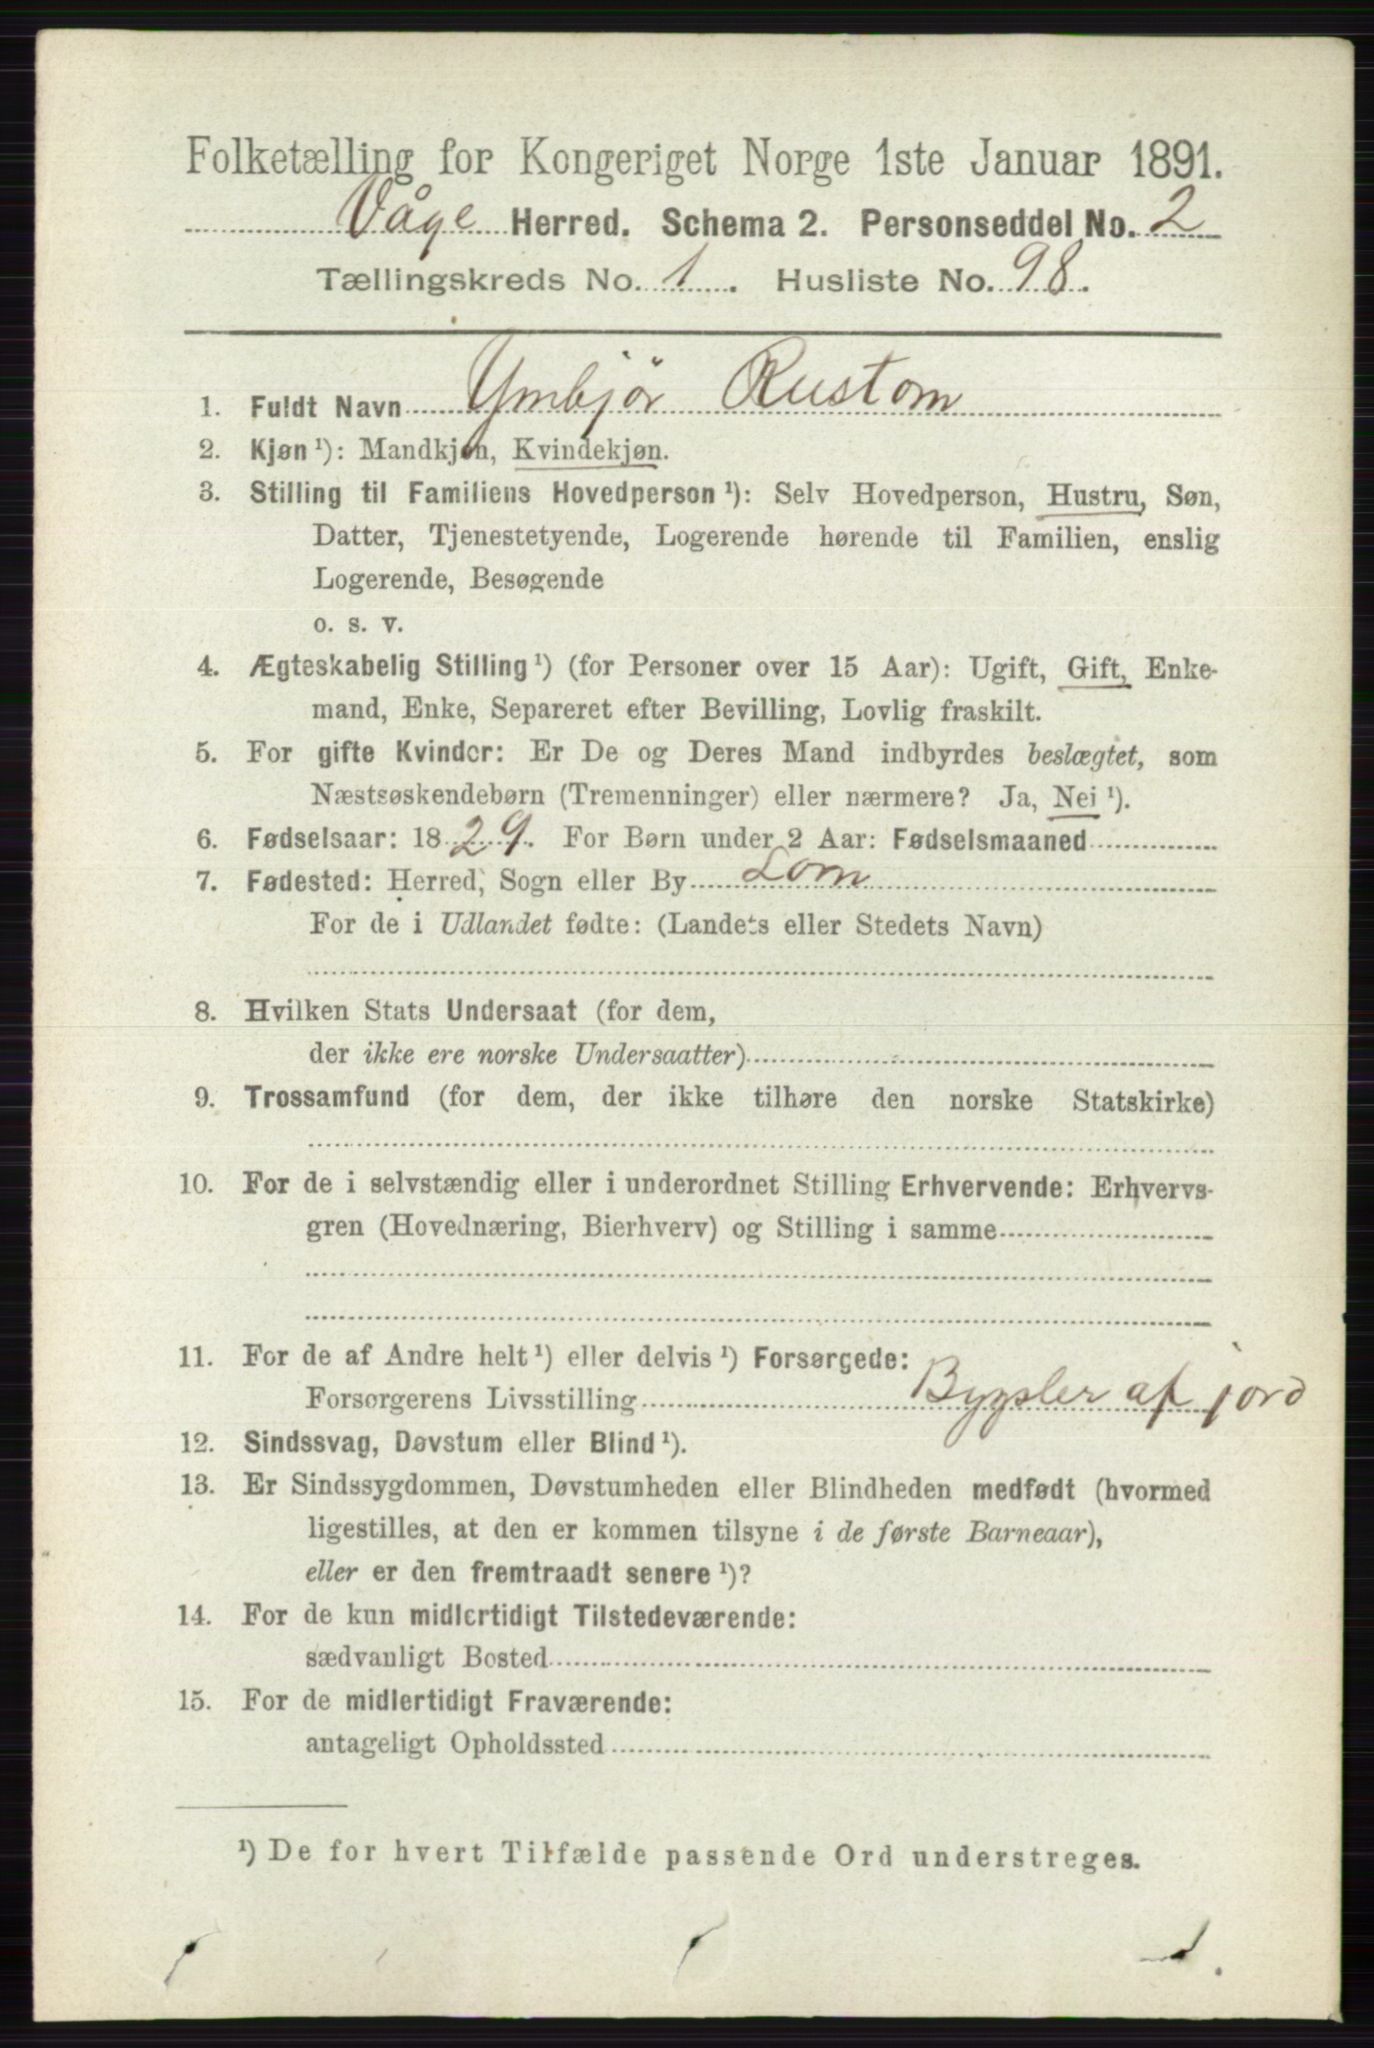 Folketælling for Kongeriget Norge 1ste Januar 1891.
Våge Herred. Schema 2. Personseddel No. 2
Tællingskreds No. 1. Husliste No. 98.
1. Fuldt Navn Ymbjør Rustom
2. Kjøn ¹): Mandkjøn, Kvindekjøn.
3. Stilling til Familiens Hovedperson ¹): Selv Hovedperson, Hustru, Søn,
Datter, Tjenestetyende, Logerende hørende til Familien, enslig
Logerende, Besøgende
o. s. v.
4. Ægteskabelig Stilling ¹) (for Personer over 15 Aar): Ugift, Gift, Enke-
mand, Enke, Separeret efter Bevilling, Lovlig fraskilt.
5. For gifte Kvinder: Er De og Deres Mand indbyrdes beslægtet, som
Næstsøskendebørn (Tremenninger) eller nærmere? Ja, Nei ¹).
6. Fødselsaar: 1829. For Børn under 2 Aar: Fødselsmaaned
7. Fødested: Herred, Sogn eller By Lom
For de i Udlandet fødte: (Landets eller Stedets Navn)
8. Hvilken Stats Undersaat (for dem,
der ikke ere norske Undersaatter)
9. Trossamfund (for dem, der ikke tilhøre den norske Statskirke)
10. For de i selvstændig eller i underordnet Stilling Erhvervende: Erhvervs-
gren (Hovednæring, Bierhverv) og Stilling i samme
11. For de af Andre helt ¹) eller delvis ¹) Forsørgede:
Forsørgerens Livsstilling Bygsler af jord
12. Sindssvag, Døvstum eller Blind ¹).
13. Er Sindssygdommen, Døvstumheden eller Blindheden medfødt (hvormed
ligestilles, at den er kommen tilsyne i de første Barneaar),
eller er den fremtraadt senere ¹)?
14. For de kun midlertidigt Tilstedeværende:
sædvanligt Bosted
15. For de midlertidigt Fraværende:
antageligt Opholdssted
¹) De for hvert Tilfælde passende Ord understreges.